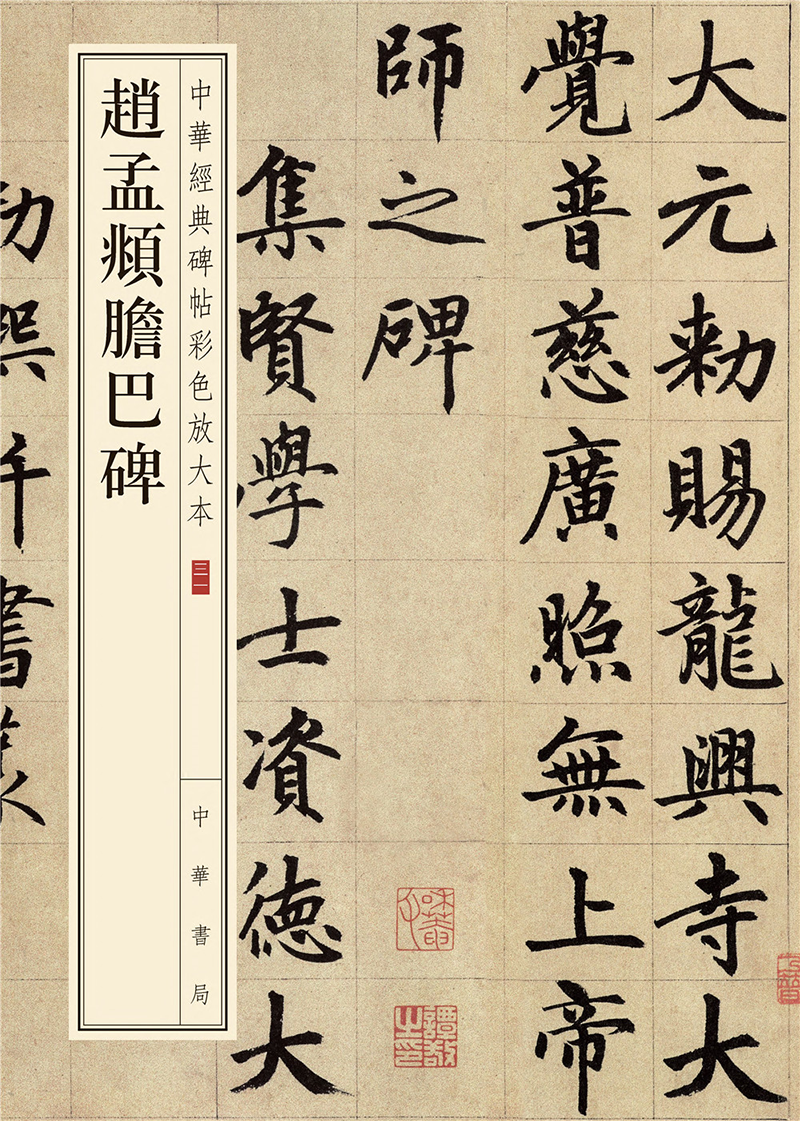 大元勅賜龍興寺大
覺普慈廣照無上帝
師之碑
集賢學士資德大
中華經典碑帖彩色放大本
三一
中華書局
趙孟頫膽巴碑